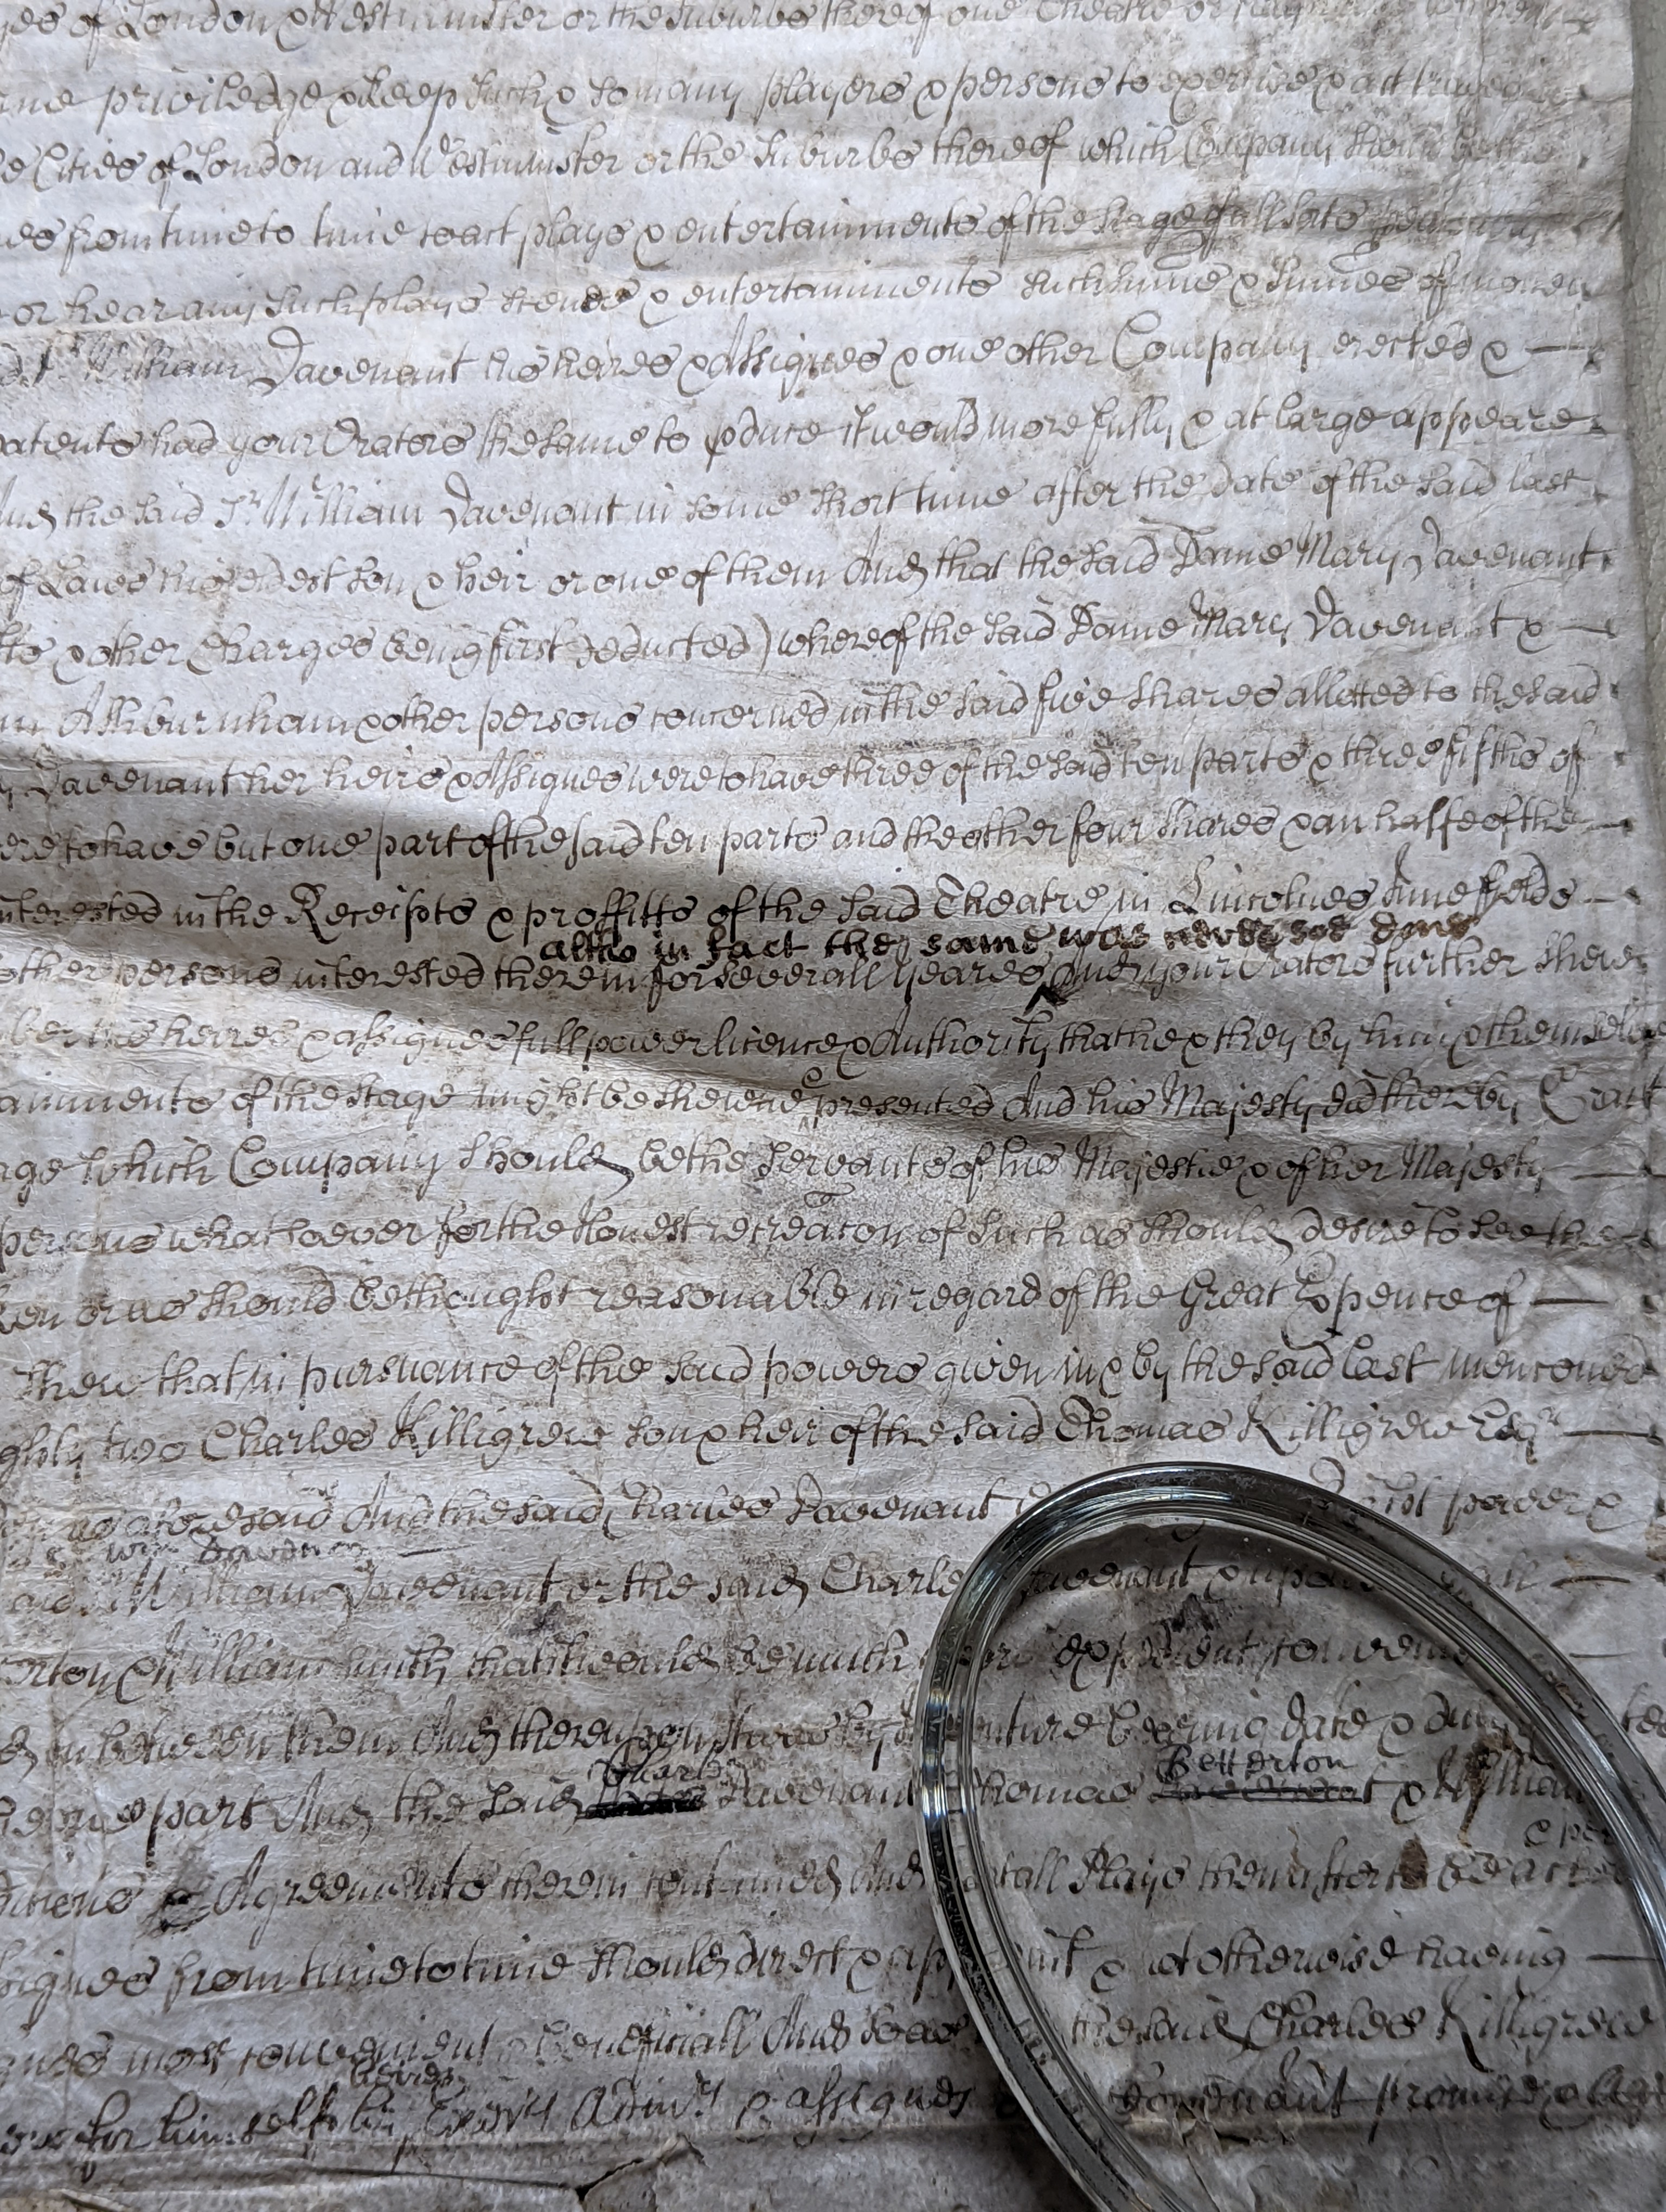 of London & Westminster or the suburbs thereof one Theatre or
priviledge & keep such & so many players & persons to exercise & act
Cities of London and Westminster or the suburbs thereof which Company should be
from time to time to act plays & entertainments of the stage of all sorts
or hear any such plays scenes & entertainments such summe & summes of money
Sr William Davenant his heires & Assignes & one other Company erected &
patents had your Orators the same to pduce it would more fully & at large appeare
And the said Sr William Davenant in some short time after the date of the said last
of Lawes his eldest son & heir or one of them And that the said Dame Mary Davenant
& other Charges being first deducted) whereof the said Dame Mary Davenant &
Ashburnham & other persons concerned in the said five shares allotted to the said
Davenant her heirs & Assignes were to have three of the said ten parts & three fifths of
to have but one part of the said ten parts and the other four shares & an halfe of the
interested in the Receipts & proffitts of the said Theatre in Lincolnes Inne fields
altho in fact the same was never soe done
other persons interested therein for severall yeares And your Orators further shew
his heires & assignes full power licence & Authority that he & they by him & themselves
of the stage might be shewed & presented And his Majesty did thereby Grant
which Company should be the servants of his Majestie & of her Majesty
persons whatsoever for the honest recreacon of such as should desire to see the
or as should be thought reasonable in regard of the Great Expence of
Shew that in pursuance of the said powers given in & by the said last menconed
two Charles Killigrew son & heir of the said Thomas Killigrew Esqr
as aforesaid And the said Charles Davenant power &
Wm Davenant
William Davenant or the said Charles Davenant &
& William Smith that it would be much more expedient
in between them And thereupon by Indenture bearing date &
Charles Betterton
part And the said Davenant Thomas Davenant & William
Agreements therein And all Plays thereafter to be acted
from time to time should direct & appoint & not otherwise having
most convenient & beneficiall And the said Charles Killigrew
heires
for himselfe his Exors Admrs & assignes Covenant promise &